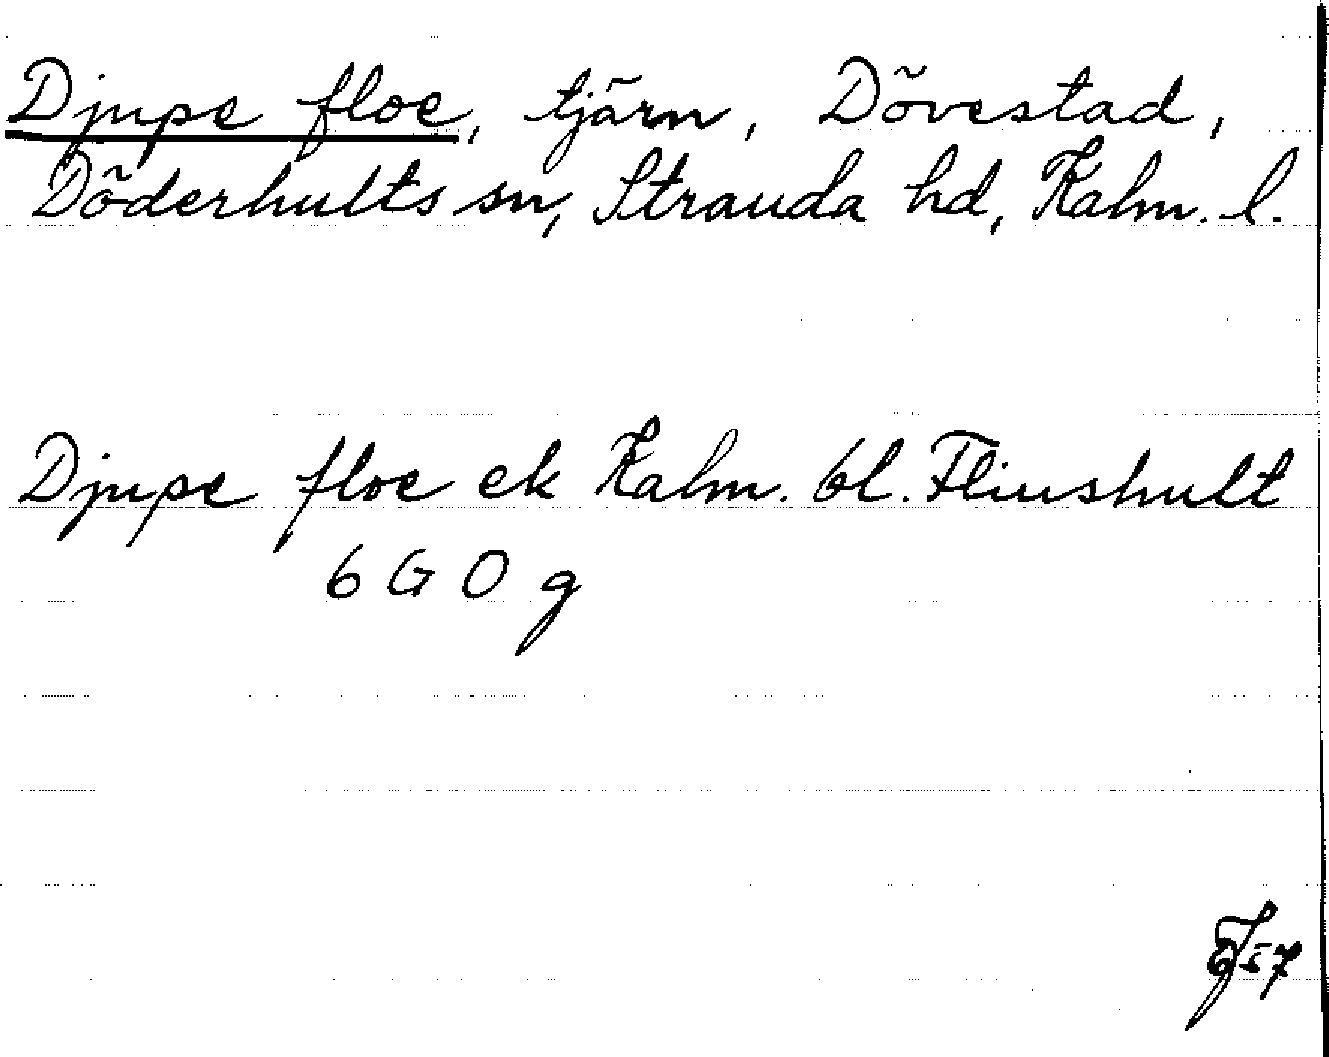 Djupe floe, tjärn, Dövestad,
Döderhults sn, Stranda hd, Kalm. l.
Djupe floe ek Kalm. bl. Flinshult
6 G 0 g